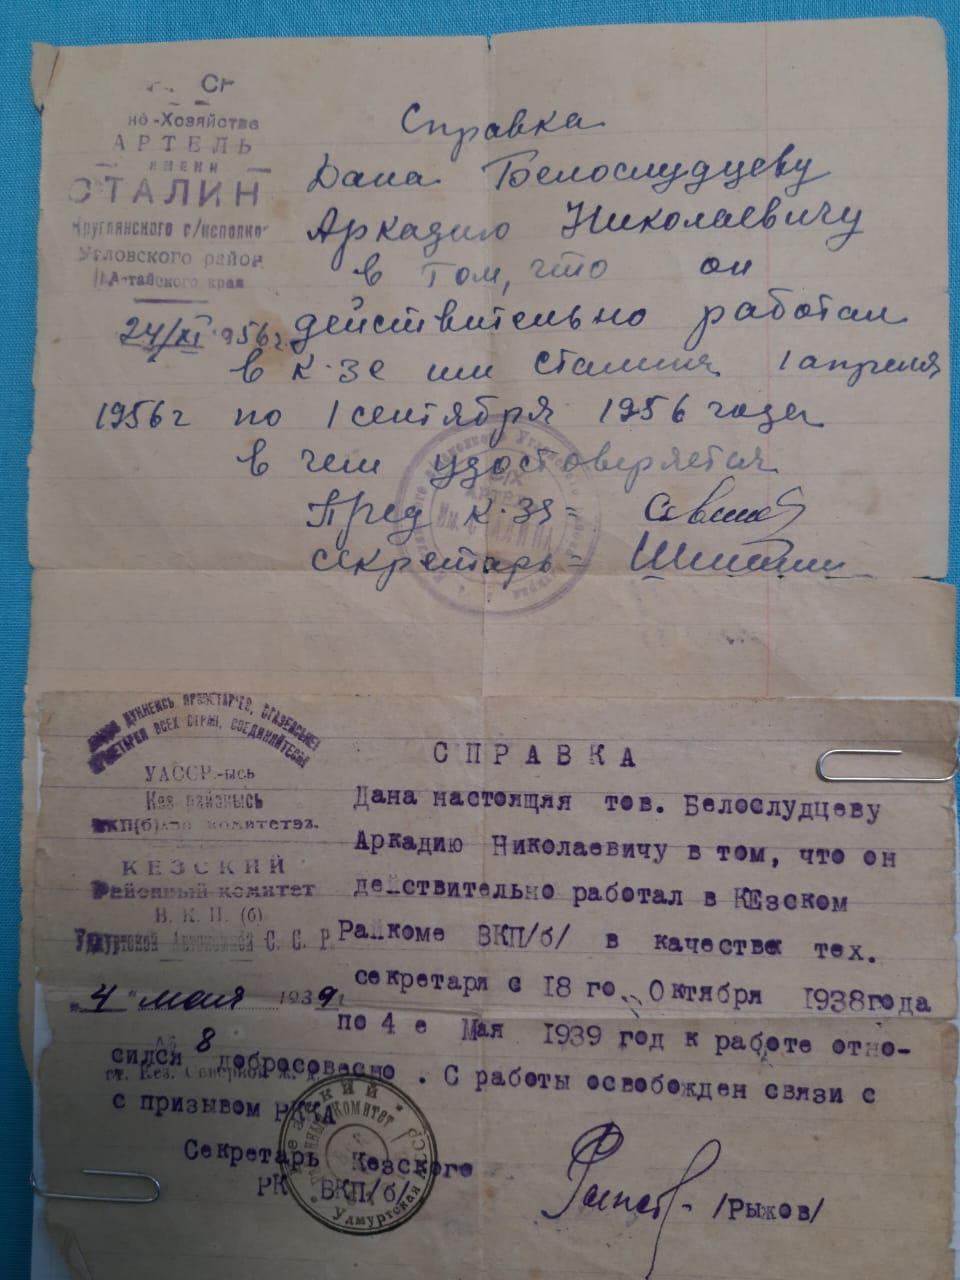 но-Хозяйстве
АРТЕЛЬ
ИМЕНИ
СТАЛИН
Круглянского с/исполко
Угловского район
Алтайского края
24/XI 1956г.
Справка
Дана Белослудцеву
Аркадию Николаевичу
в том, что он
действительно работал
в к-зе им Сталина 1 апреля
1956г по 1 сентября 1956 года
в чем удостоверяется
Пред к-за=
Секретарь=
АРТЕЛЬ
ПРОЛЕТАРИИ ВСЕХ СТРАН, СОЕДИНЯЙТЕСЬ!
УАССР.-ысь
Кез районысь
ВКП(б) комитетэз.
КЕЗСКИЙ
Районный комитет
В. К. П. (б)
Удмуртской Автономной С. С. Р.
"4" мая 1939г.
№ 8
ст. Кез. Северной ж. д.
СПРАВКА
Дана настоящяя тов. Белослудцеву
Аркадию Николаевичу в том, что он
действительно работал в КЕзском
Райкоме ВКП/б/ в качества тех.
секретаря с 18 го. Октября 1938года
по 4 е Мая 1939 год к работе отно-
сился добросовесно . С работы освобожден связи с
с призывом РККА
Секретарь Кезского
РК ВКП/б/
/Рыжов/
Удмуртская АССР